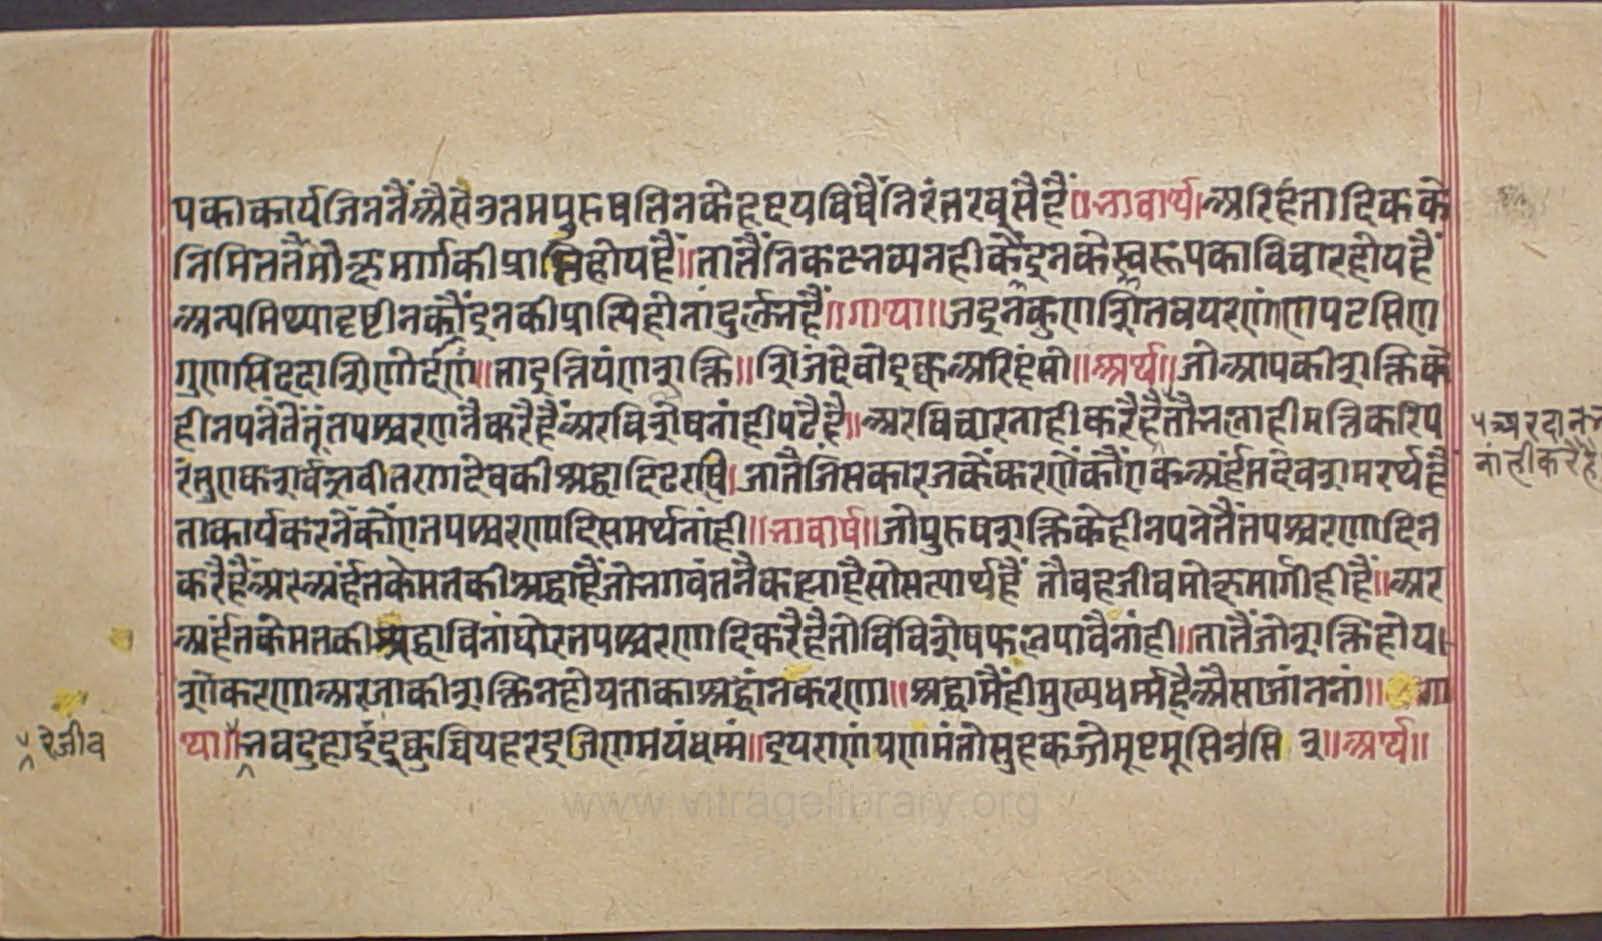 पका कार्य जिननैं अैसे उतम पुरुष तिनके हृदय विषैं निरंतर वसै हैं॥ भावार्थ। अरिहंतादिकके
निमिततैं मोक्ष मार्गकी प्राप्ति होय हैं॥ तातैं निकट भव्यनही कैं इनके स्वरूपका विचार होय हैं
अन्य मिथ्यादृष्टीनकौं इनकी प्राप्ति होनां दुर्ल्लभ हैं॥ गाथा॥ जइ न कुणशि तवयरणं ण पटसि ण
गुणसि ददाशि णो दाणं॥ ता इत्तियं ण शक्ति॥ शि जं देवो इक्क अरिहंतो॥ अर्थ॥ जो आपकी शक्तिके
हीनपनेंतें तूं तपश्चरण नै करै हैं अर विशेष नांही पढै है॥ अर विचार नाही करै है तौ भला ही मति करि प
रंतु एक शर्वज्ञ वीतराग देवकी श्रद्धा दिढ राषि। जातै जिस कारजकें करणेंकौं एक अर्हंतदेव शमरर्थ है
ता कार्य करनेंकों ए तपश्चरणादि समर्थ नांही॥ भावार्थ॥ जो पुरुष शक्तिके हीनपनेतैं तपश्चरणादि न
करै हैं अरु अर्हंतके मतकी श्रद्धा हैं जो भगवंतनै कह्या है सो सत्यार्थ हैं तौ वह जीव मोक्षमार्गी ही हैं॥ अर
अर्हंतके मतकी श्रद्धा विनां घोर तपश्चरणादि करै है तो वि विशेष फल पावै नांही॥ तातैं जो शक्ति होय।
शो करणा अर जाकी शक्ति न होय ताका श्रद्धांन करणा॥ श्रद्धामैंही मुख्य धर्म्म है अैसा जांननां॥ गा
था॥ भवदुहाइं इक्कुच्चिय हरइ जिणमयं धम्मं॥ इयराणं पणमंतो सुहकज्जे मूढ मूसिउसि २॥ अर्थ॥
५ अर दान भी
नांही करै है
रे जीव
www.vitragelibrary.org